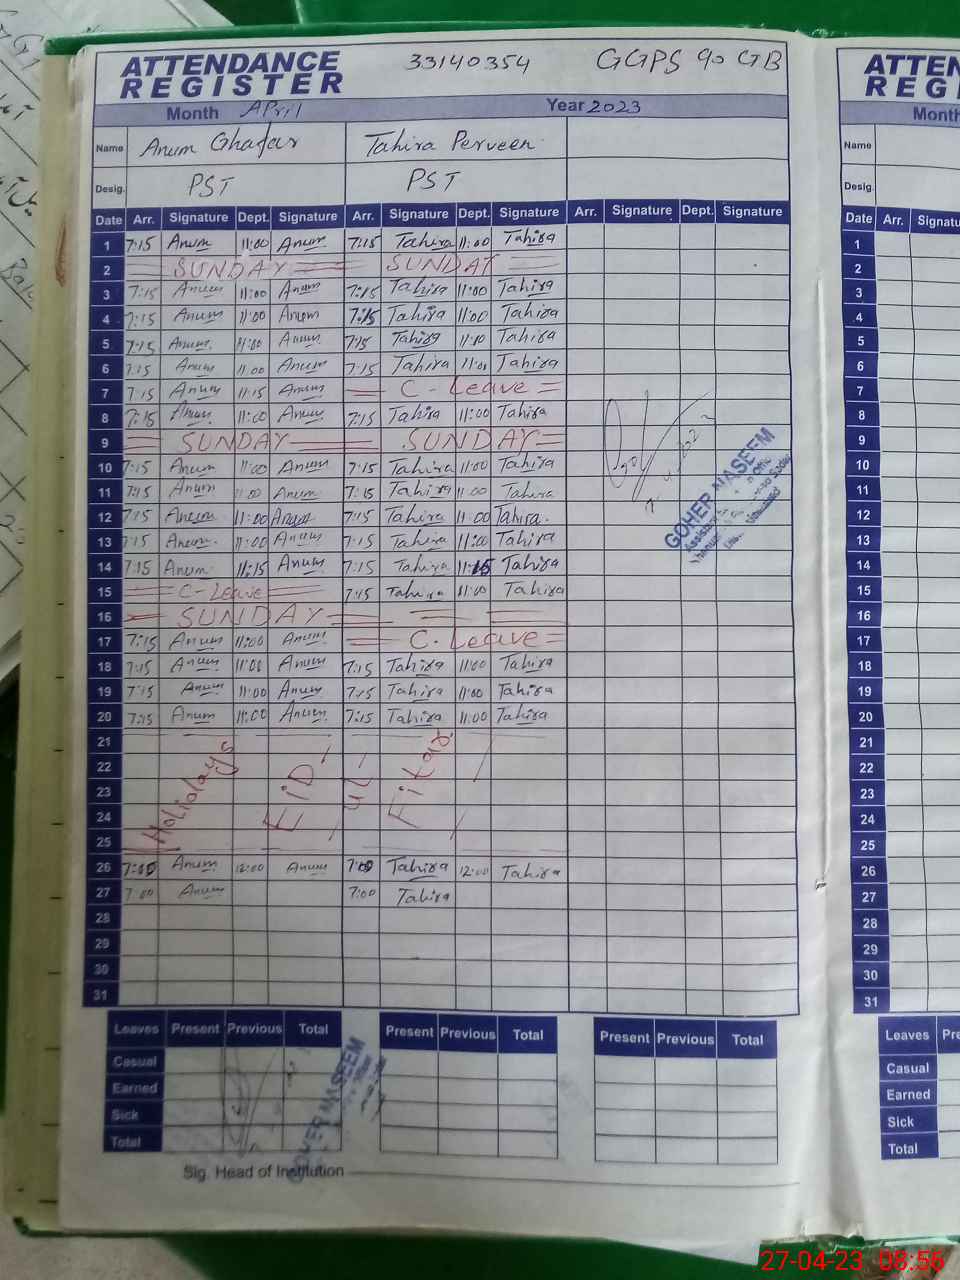 ATTENDANCE REGISTER 33140354 GGPS 90 GB
Month April Year 2023
Name Anum Ghafar Tahira Perveen
Desig. PST PST
Date Arr. Signature Dept. Signature Arr. Signature Dept. Signature Arr. Signature Dept. Signature
1 7:15 Anum 11:00 Anum 7:15 Tahira 11:00 Tahira
2 SUNDAY SUNDAY
3 7:15 Anum 11:00 Anum 7:15 Tahira 11:00 Tahira
4 7:15 Anum 11:00 Anum 7:15 Tahira 11:00 Tahira
5 7:15 Anum 11:00 Anum 7:15 Tahira 11:00 Tahira
6 7:15 Anum 11:00 Anum 7:15 Tahira 11:00 Tahira
7 7:15 Anum 11:15 Anum C-Leave
8 7:15 Anum 11:00 Anum 7:15 Tahira 11:00 Tahira
9 SUNDAY SUNDAY
10 7:15 Anum 11:00 Anum 7:15 Tahira 11:00 Tahira
11 7:15 Anum 11:00 Anum 7:15 Tahira 11:00 Tahira
12 7:15 Anum 11:00 Anum 7:15 Tahira 11:00 Tahira.
13 7:15 Anum 11:00 Anum 7:15 Tahira 11:00 Tahira
14 7:15 Anum 11:15 Anum 7:15 Tahira 11:15 Tahira
15 C-Leave 7:15 Tahira 11:00 Tahira
16 SUNDAY
17 7:15 Anum 11:00 Anum C.Leave
18 7:15 Anum 11:00 Anum 7:15 Tahira 11:00 Tahira
19 7:15 Anum 11:00 Anum 7:15 Tahira 11:00 Tahira
20 7:15 Anum 11:00 Anum 7:15 Tahira 11:00 Tahira
21
22
23 Holidays EiD-ul-Fitar
24
25
26 7:00 Anum 12:00 Anum 7:00 Tahira 12:00 Tahira
27 7:00 Anum 7:00 Tahira
28
29
30
31
GOHER NASEEM
Leaves Present Previous Total Present Previous Total Present Previous Total
Casual
Earned
Sick
Total
GOHER NASEEM
Sig. Head of Institution
Month
Name
Desig.
Date Arr.
1
2
3
4
5
6
7
8
9
10
11
12
13
14
15
16
17
18
19
20
21
22
23
24
25
26
27
28
29
30
31
Leaves
Casual
Earned
Sick
Total
27-04-23 08:56